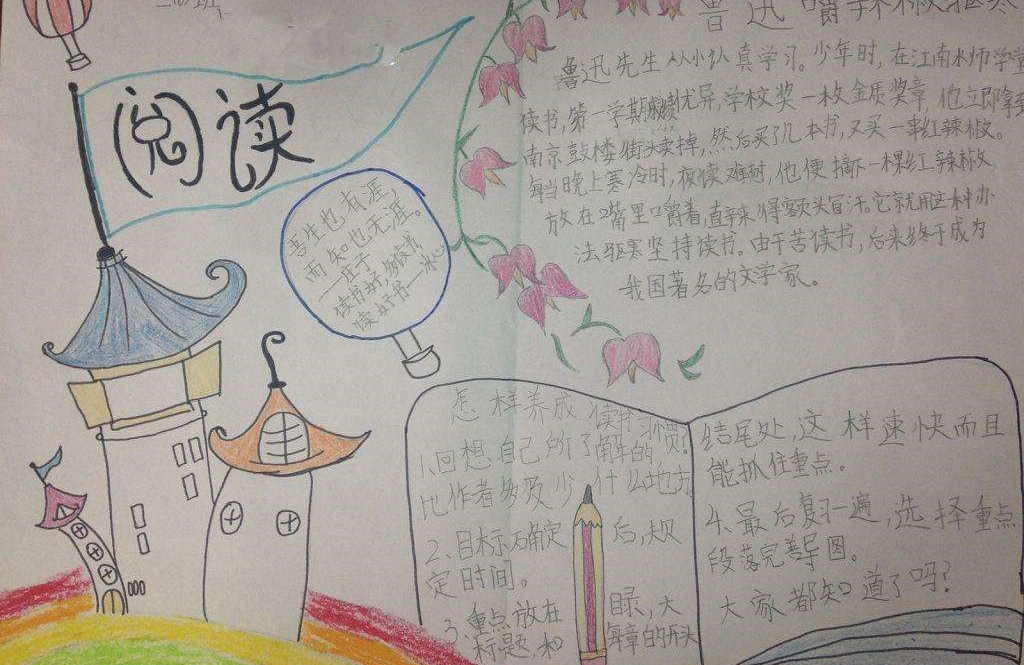 二
班
阅读
吾生也有涯，
而知也无涯。
——庄子
读书好，多读书
读好书——冰心
鲁迅嚼辣椒驱寒
鲁迅先生从小认真学习。少年时，在江南水师学堂
读书，第一学期成绩优异，学校奖一枚金质奖章，他立即拿到
南京鼓楼街头卖掉，然后买了几本书，又买一串红辣椒。
每当晚上寒冷时，夜读难耐，他便摘下一棵红辣椒，
放在嘴里嚼着，直辣得额头冒汗。它就用这种办
法驱寒坚持读书。由于苦读书，后来终于成为
我国著名的文学家。
怎样养成读书习惯？
1、回想自己所了解的
比作者多及少什么地方
2、目标无确定后，规
定时间。
3、重点放在目录，大
标题，和每章的开头
结尾处，这样速快而且
能抓住重点。
4、最后复习一遍，选择重点
段落完善导图。
大家都知道了吗？